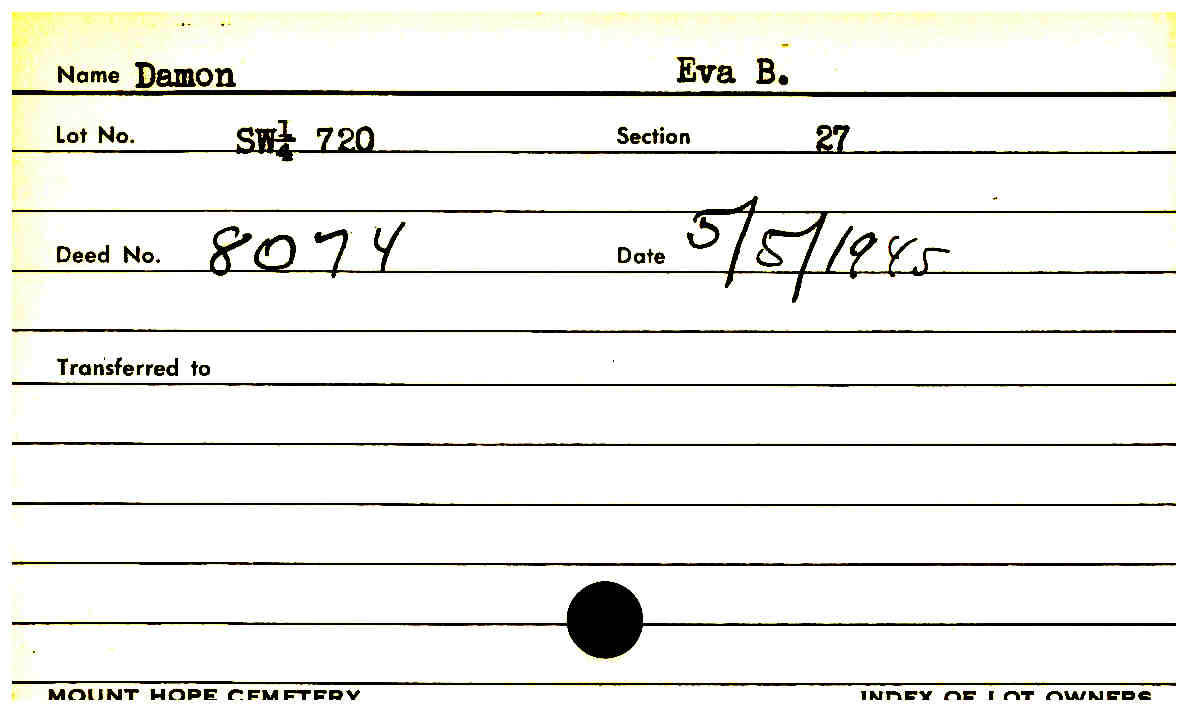 Name Damon Eva B.
Lot No. SW¼ 720 Section 27
Deed No. 8074 Date 5/5/1945
Transferred to
MOUNT HOPE CEMETERY INDEX OF LOT OWNERS